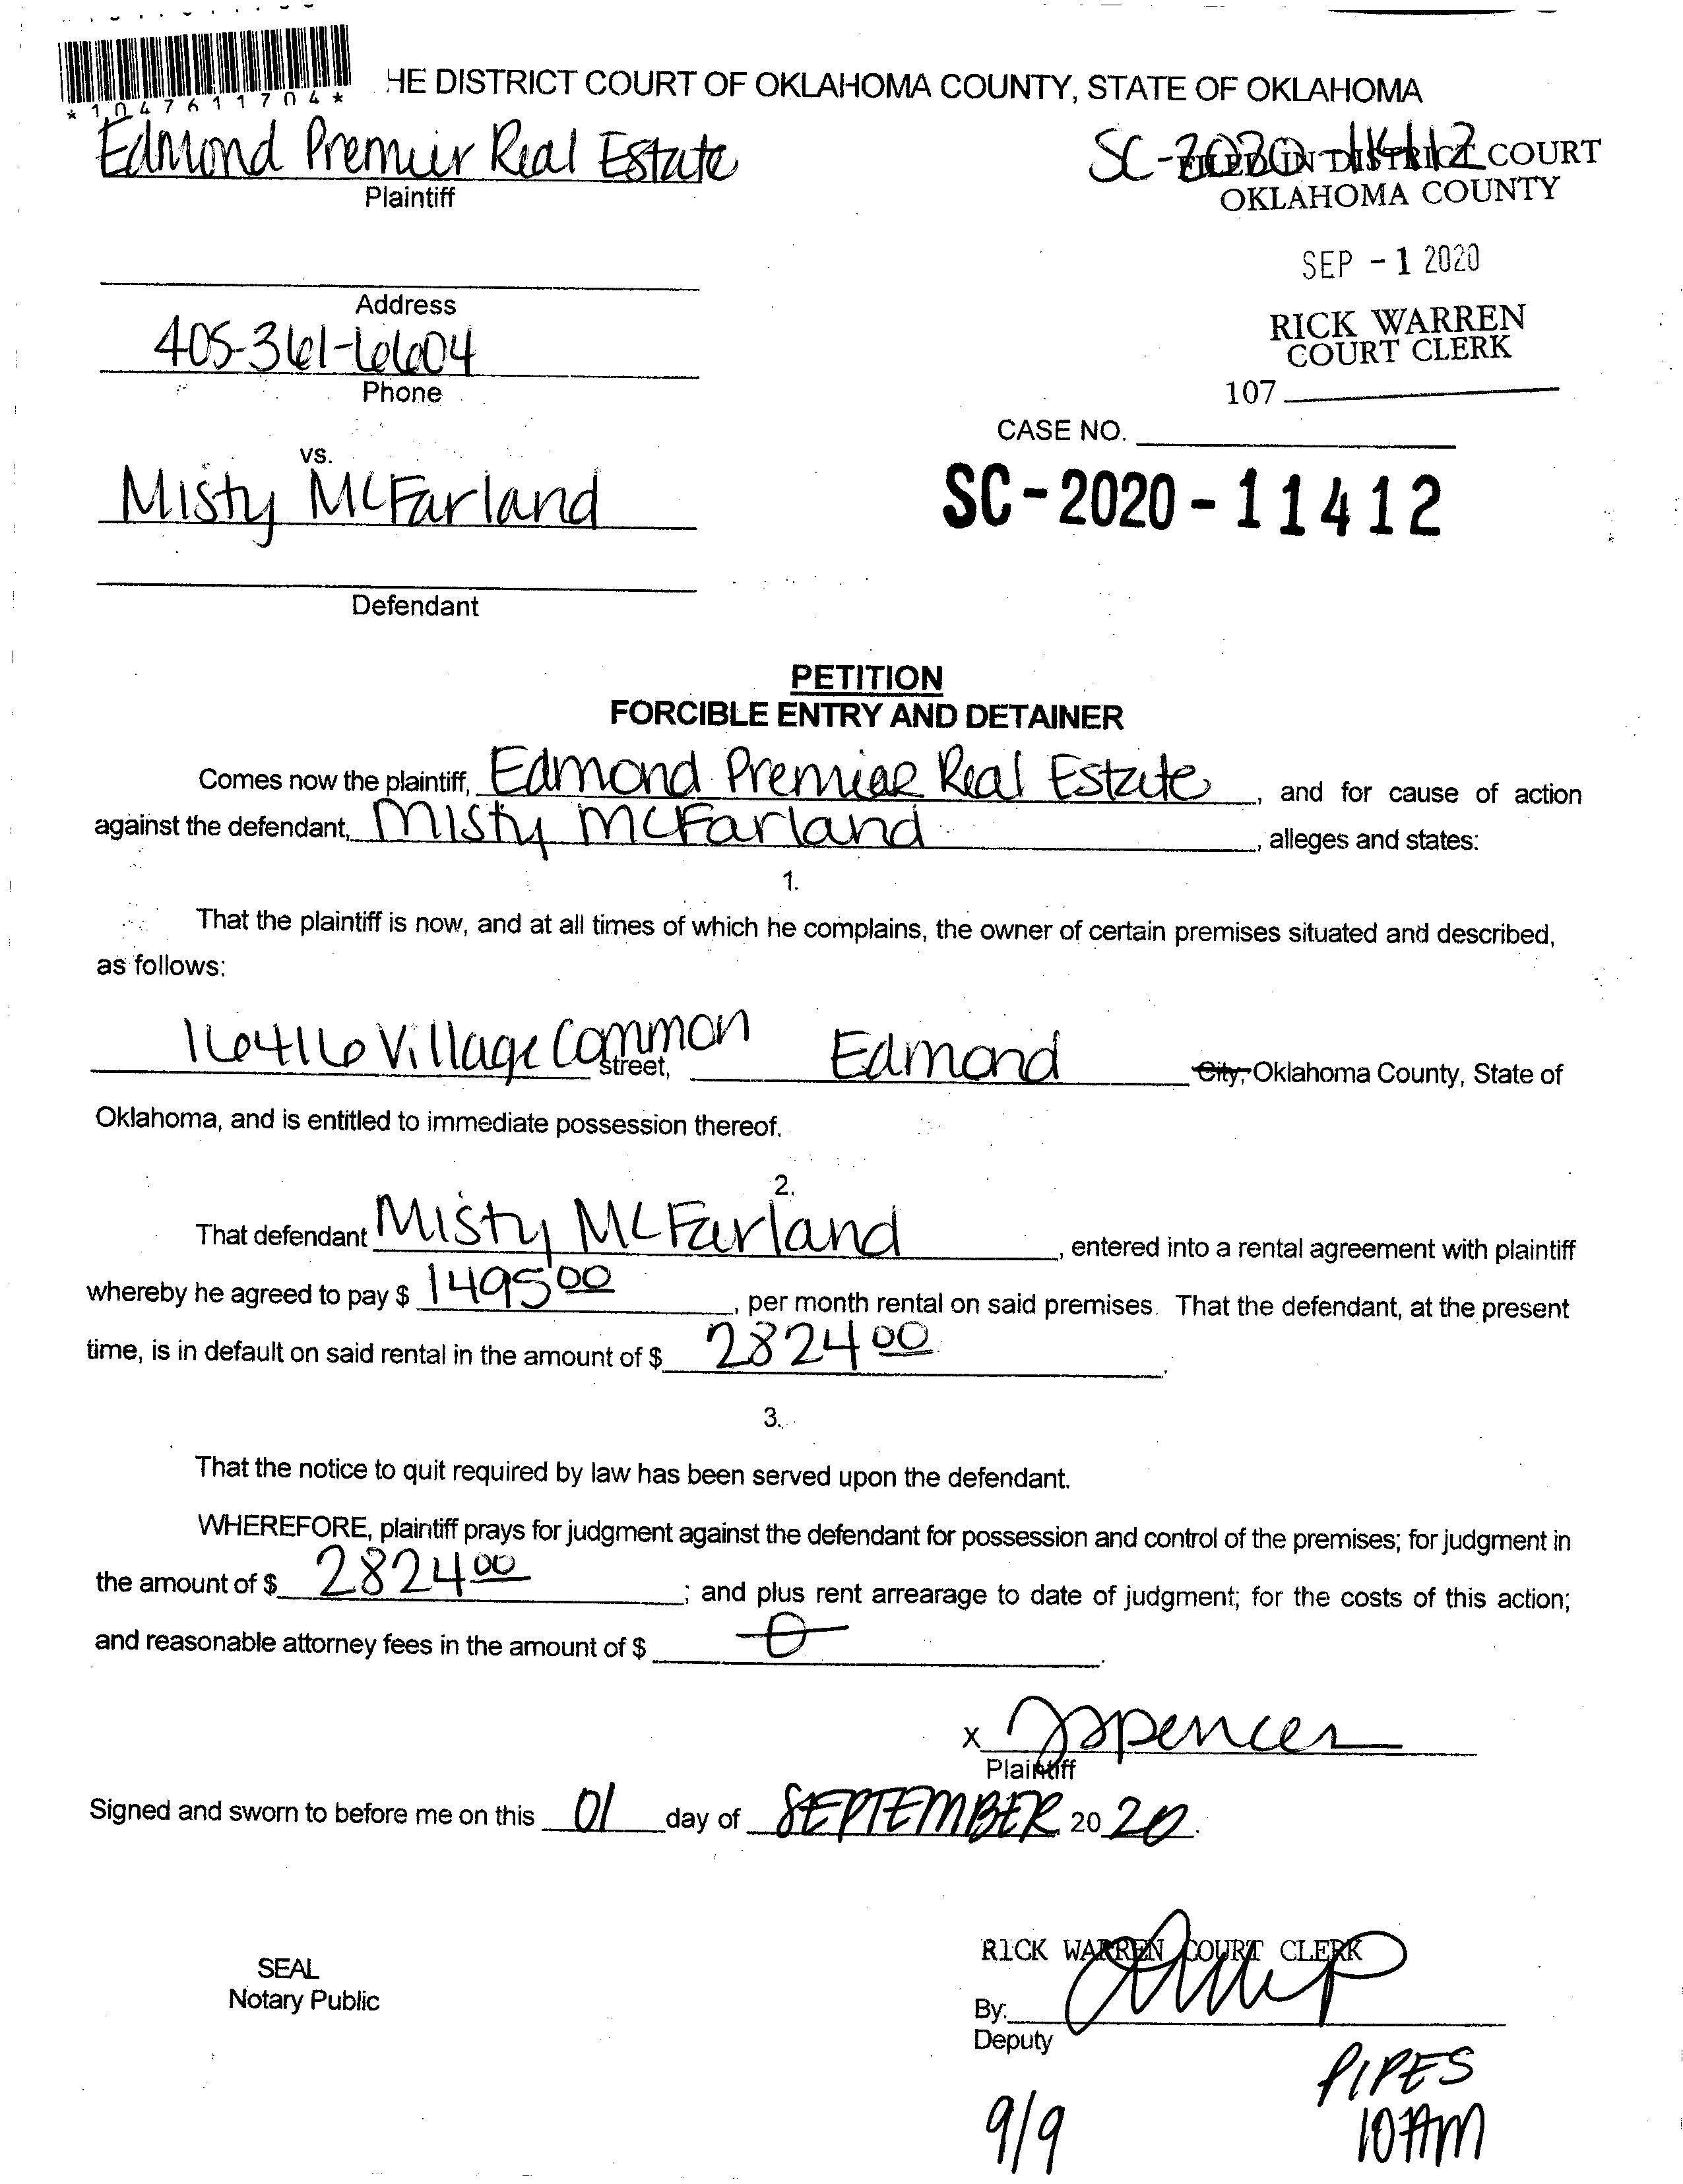 *1047611704*
HE DISTRICT COURT OF OKLAHOMA COUNTY, STATE OF OKLAHOMA
Edmond Premier Real Estate
Plaintiff
SC-2020-11412
FILED IN DISTRICT COURT
OKLAHOMA COUNTY
SEP - 1 2020
RICK WARREN
COURT CLERK
107
Address
405-361-6604
Phone
CASE NO.
SC-2020-11412
vs.
Misty McFarland
Defendant
PETITION
FORCIBLE ENTRY AND DETAINER
Comes now the plaintiff, Edmond Premier Real Estate, and for cause of action
against the defendant, Misty McFarland, alleges and states:
1.
That the plaintiff is now, and at all times of which he complains, the owner of certain premises situated and described,
as follows:
16416 Village Common street, Edmond City, Oklahoma County, State of
Oklahoma, and is entitled to immediate possession thereof.
2.
That defendant Misty McFarland, entered into a rental agreement with plaintiff
whereby he agreed to pay $ 1495 00, per month rental on said premises. That the defendant, at the present
time, is in default on said rental in the amount of $ 2824 00.
3.
That the notice to quit required by law has been served upon the defendant.
WHEREFORE, plaintiff prays for judgment against the defendant for possession and control of the premises; for judgment in
the amount of $ 2824 00; and plus rent arrearage to date of judgment; for the costs of this action;
and reasonable attorney fees in the amount of $ 0.
x JSpencer
Plaintiff
Signed and sworn to before me on this 01 day of SEPTEMBER 20 20.
RICK WARREN COURT CLERK
SEAL
Notary Public
By:
Deputy
PIPES
9/9 10AM